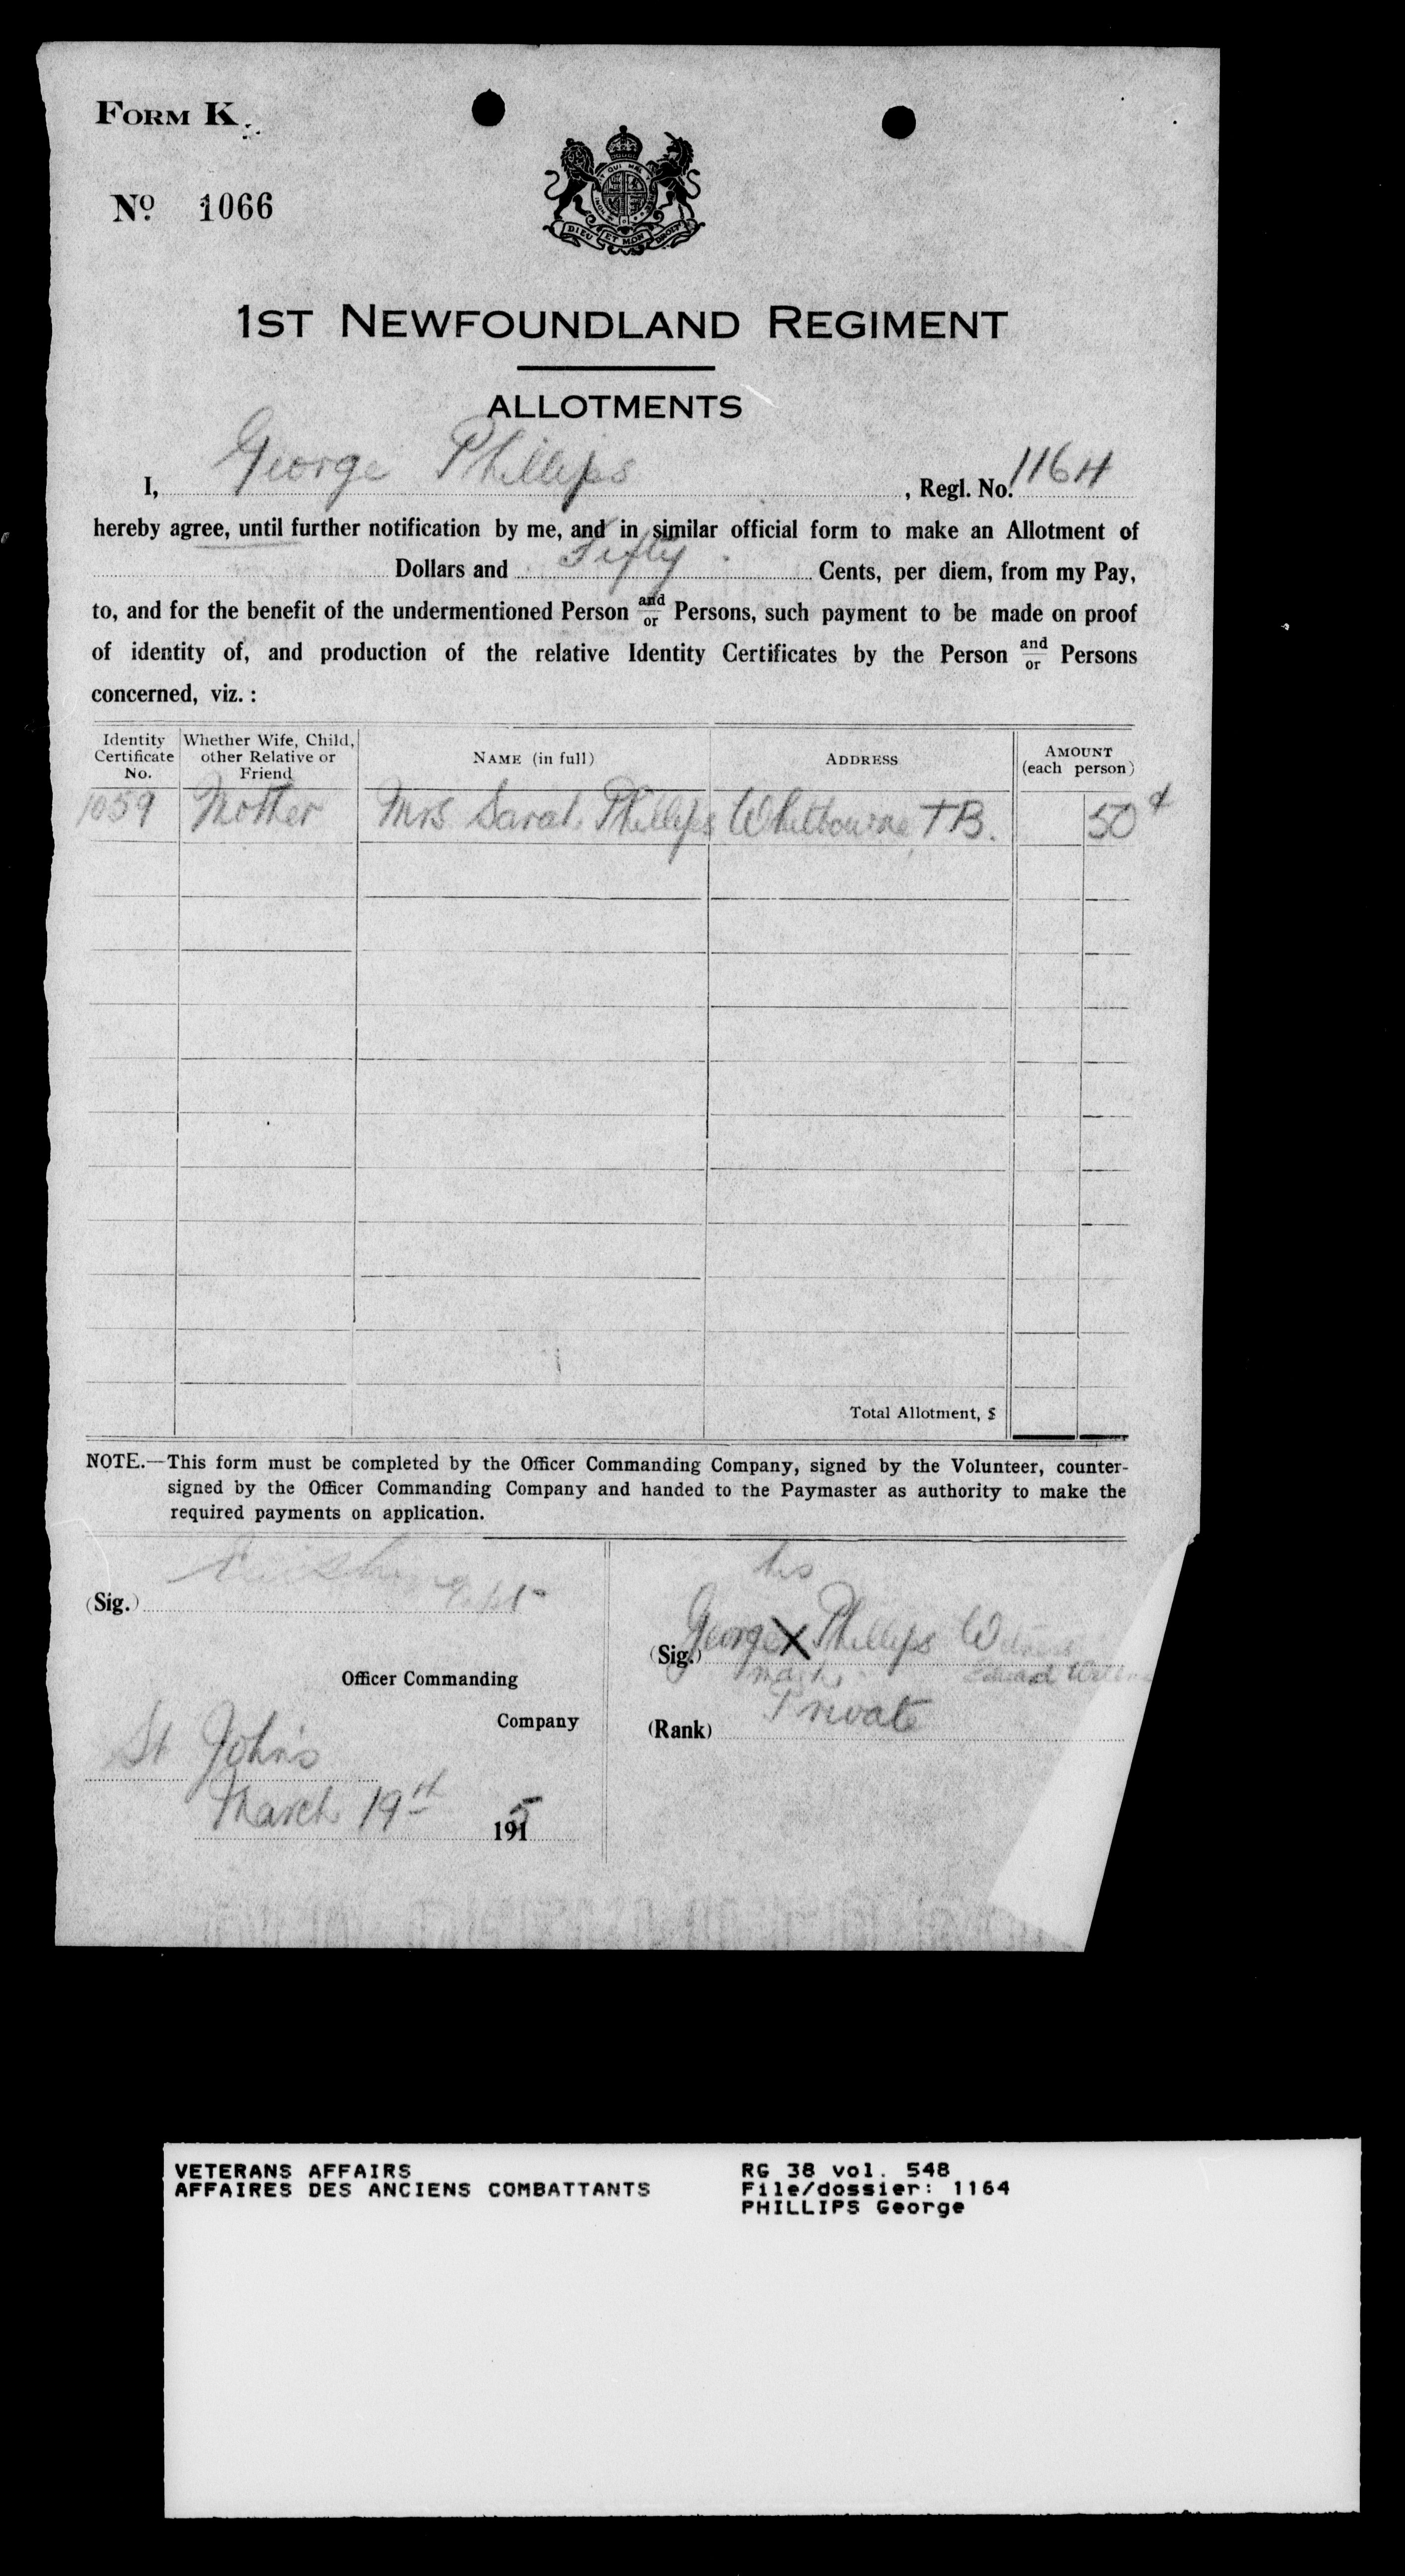 FORM K.
No. 1066
DIEU ET MON DROIT
1ST NEWFOUNDLAND REGIMENT
ALLOTMENTS
I, George Phillips, Regl. No. 1164
hereby agree, until further notification by me, and in similar official form to make an Allotment of
Dollars and Fifty Cents, per diem, from my Pay,
to, and for the benefit of the undermentioned Person and/or Persons, such payment to be made on proof
of identity of, and production of the relative Identity Certificates by the Person and/or Persons
concerned, viz. :
Identity Certificate No. Whether Wife, Child, other Relative or Friend NAME (in full) ADDRESS AMOUNT (each person)
1059 Mother Mrs Sarah Phillips Whitbourne T B. 50 ¢
Total Allotment, $
NOTE.—This form must be completed by the Officer Commanding Company, signed by the Volunteer, counter-
signed by the Officer Commanding Company and handed to the Paymaster as authority to make the
required payments on application.
(Sig.) Capt
Officer Commanding
Company
St John's
March 19th 1915
his
(Sig.) George X Phillips Witness
mark Edward
(Rank) Private
VETERANS AFFAIRS
AFFAIRES DES ANCIENS COMBATTANTS
RG 38 vol. 548
File/dossier: 1164
PHILLIPS George